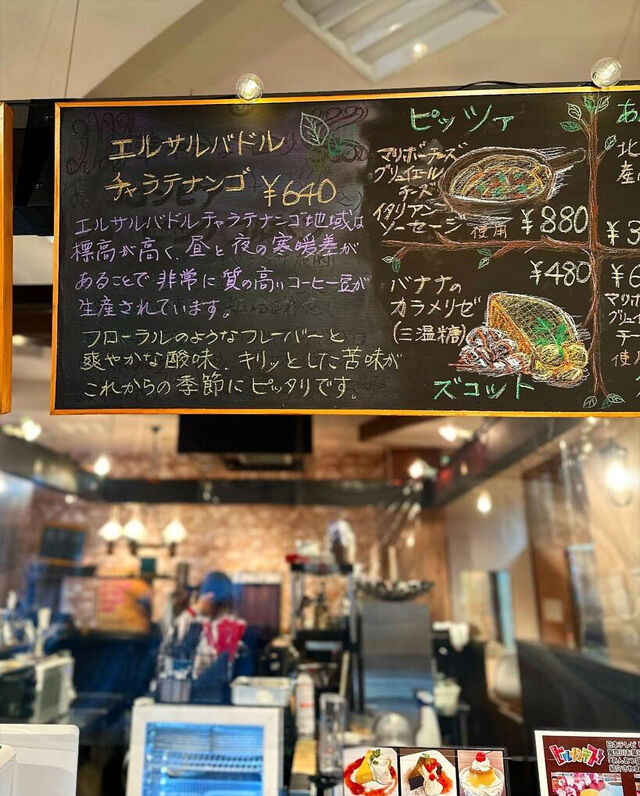 エルサルバドル
チャラテナンゴ ¥640
エルサルバドルチャラテナンゴ地域は
標高が高く、昼と夜の寒暖差が
あることで非常に質の高いコーヒー豆が
生産されています。
フローラルのようなフレーバーと
爽やかな酸味、キリッとした苦味が
これからの季節にピッタリです。
ピッツァ
マリボーチーズ
グリュイエール
チーズ
イタリアン
ソーセージ使用 ¥880
バナナの ¥480
カラメリゼ
(三温糖)
ズコット
あ
北
産
¥3
¥6
マリボ
グリュイ
チー
使
日本テレビ